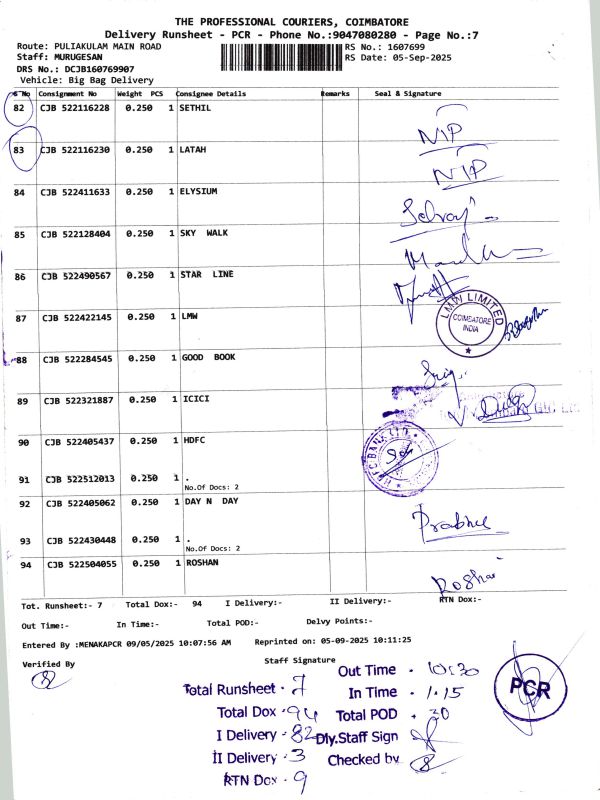 THE PROFESSIONAL COURIERS, COIMBATORE
Delivery Runsheet - PCR - Phone No.:9047080280 - Page No.:7
Route: PULIAKULAM MAIN ROAD
RS No.: 1607699
Staff: MURUGESAN
RS Date: 05-Sep-2025
DRS No.: DCJB160769907
Vehicle: Big Bag Delivery
S No Consignment No Weight PCS Consignee Details Remarks Seal & Signature
82 CJB 522116228 0.250 1 SETHIL NIP
83 CJB 522116230 0.250 1 LATAH NIP
84 CJB 522411633 0.250 1 ELYSIUM Selvaj
85 CJB 522128404 0.250 1 SKY WALK
86 CJB 522490567 0.250 1 STAR LINE
87 CJB 522422145 0.250 1 LMW LMW LIMITED COIMBATORE INDIA
88 CJB 522284545 0.250 1 GOOD BOOK
89 CJB 522321887 0.250 1 ICICI
90 CJB 522405437 0.250 1 HDFC HDFC BANK LTD
91 CJB 522512013 0.250 1 .
No.Of Docs: 2
92 CJB 522405062 0.250 1 DAY N DAY Prabhu
93 CJB 522430448 0.250 1 .
No.Of Docs: 2
94 CJB 522504055 0.250 1 ROSHAN Roshan
Tot. Runsheet:- 7 Total Dox:- 94 I Delivery:- II Delivery:- RTN Dox:-
Out Time:- In Time:- Total POD:- Delvy Points:-
Entered By :MENAKAPCR 09/05/2025 10:07:56 AM Reprinted on: 05-09-2025 10:11:25
Verified By Staff Signature
Total Runsheet - 7 Out Time - 10:30
Total Dox - 94 In Time - 1.15
I Delivery - 82 Total POD - 30
II Delivery - 3 Dly.Staff Sign
RTN Dox - 9 Checked by
PCR